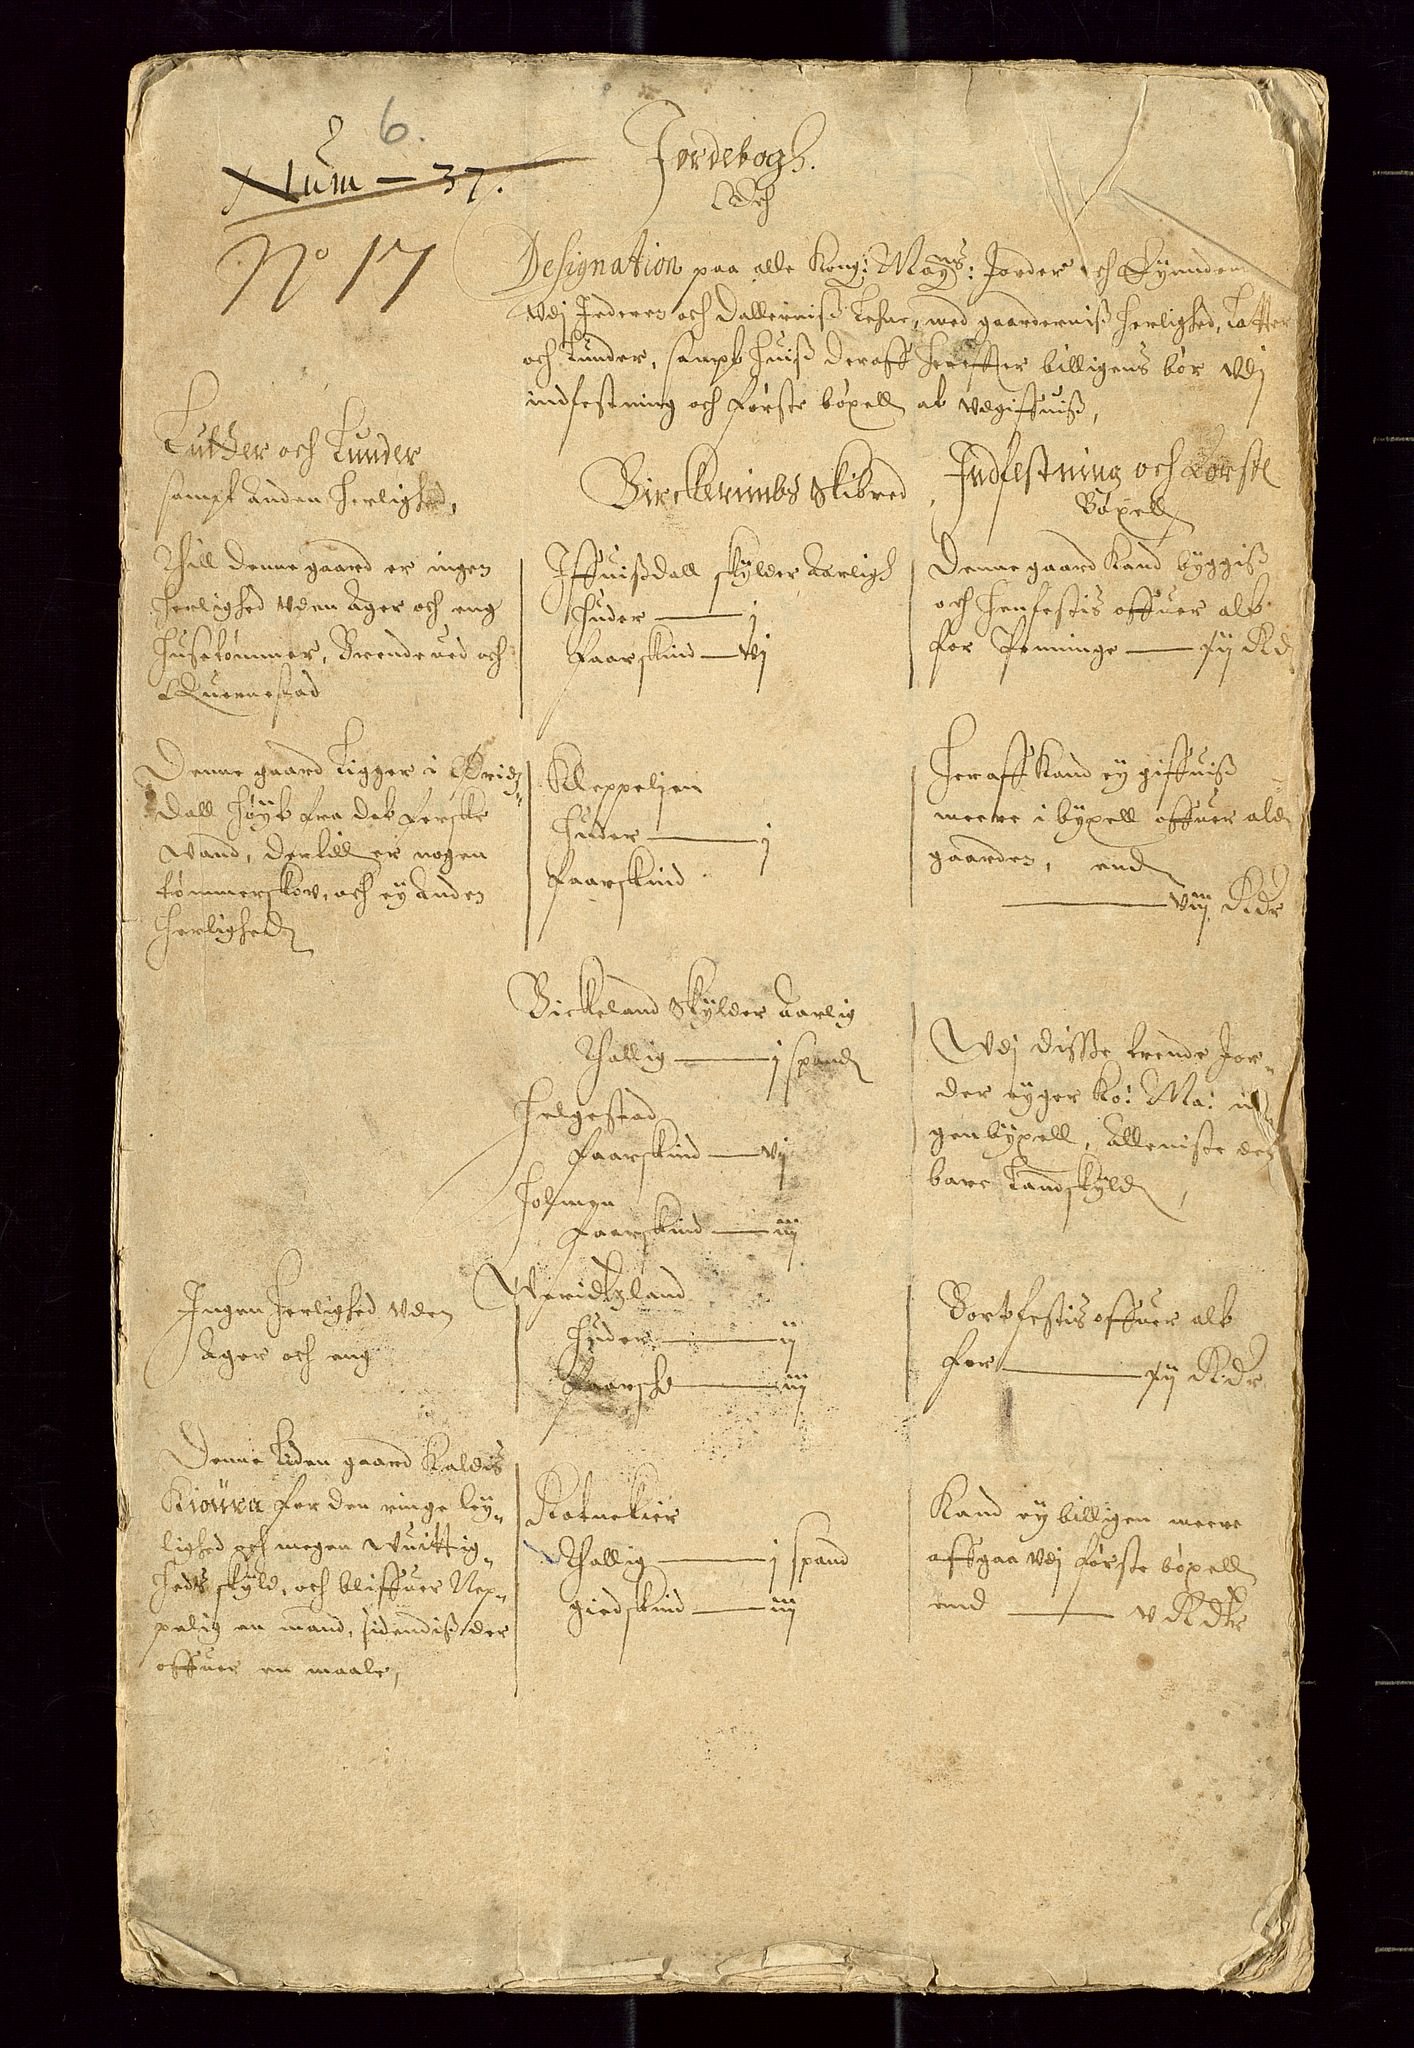 6.
Num — 37.
No 17
Jordebogh.
Och
Designation paa alle Kong: May: Jorder och
Vdj Jederen och Dallerniß Lehne, med gaarderniß herlighed, Latter
och Lunder, sampt huiß deraff hereffter billigens bör Vdj
indfestning och förste böxell at Vdgiffuiß,
Luther och Lunder
sampt anden herlighed,
Birckerimbs Skibred
Indfestning och Förste
Böxell
Thill denne gaard er ingen
herlighed Vden Ager och eng
husetömmer, Brendeued och
Quernestad
Iffuißdall skylder Aarligh
Huder — j
Faarskind — vj
Denne gaard Kand byggiß
och henfestis offuer alt
for Penninge — xij Rd
Denne gaard Ligger i
dall höyt fra det ferske
Vand, dertill er nogen
tömmerskov, och ey anden
herlighed
Kleppelien
Huder — j
Faarskind
Heraff Kand ey giffuiß
meere i byxell offuer ald
gaarden, end
— viij Rdr
Birkeland Skylder Aarlig
Thallig — j spand
Helgestad
Faarskind — vj
Holmen
Faarskind — iij
Vdj disse trende Jor-
der eyger Ko: Ma: in
gen byxell, Alleniste den
bare Landskyld,
Ingen Herlighed Vden
Ager och eng
Veridtzland
Huder — ij
Faarsk — iij
Bortfestis offuer alt
for — xij Rdr
Denne Liden gaard Kaldis
Kioüra for den ringe ley-
lighed och megen Vuittig-
heds skyld, och bliffuer Nep-
pelig en mand, sidendiß der
offuer en maale,
Thallig — j spand
giedskind — iij
Kand ey billigen meere
affgaa Vdj förste böxell
end — v Rdr